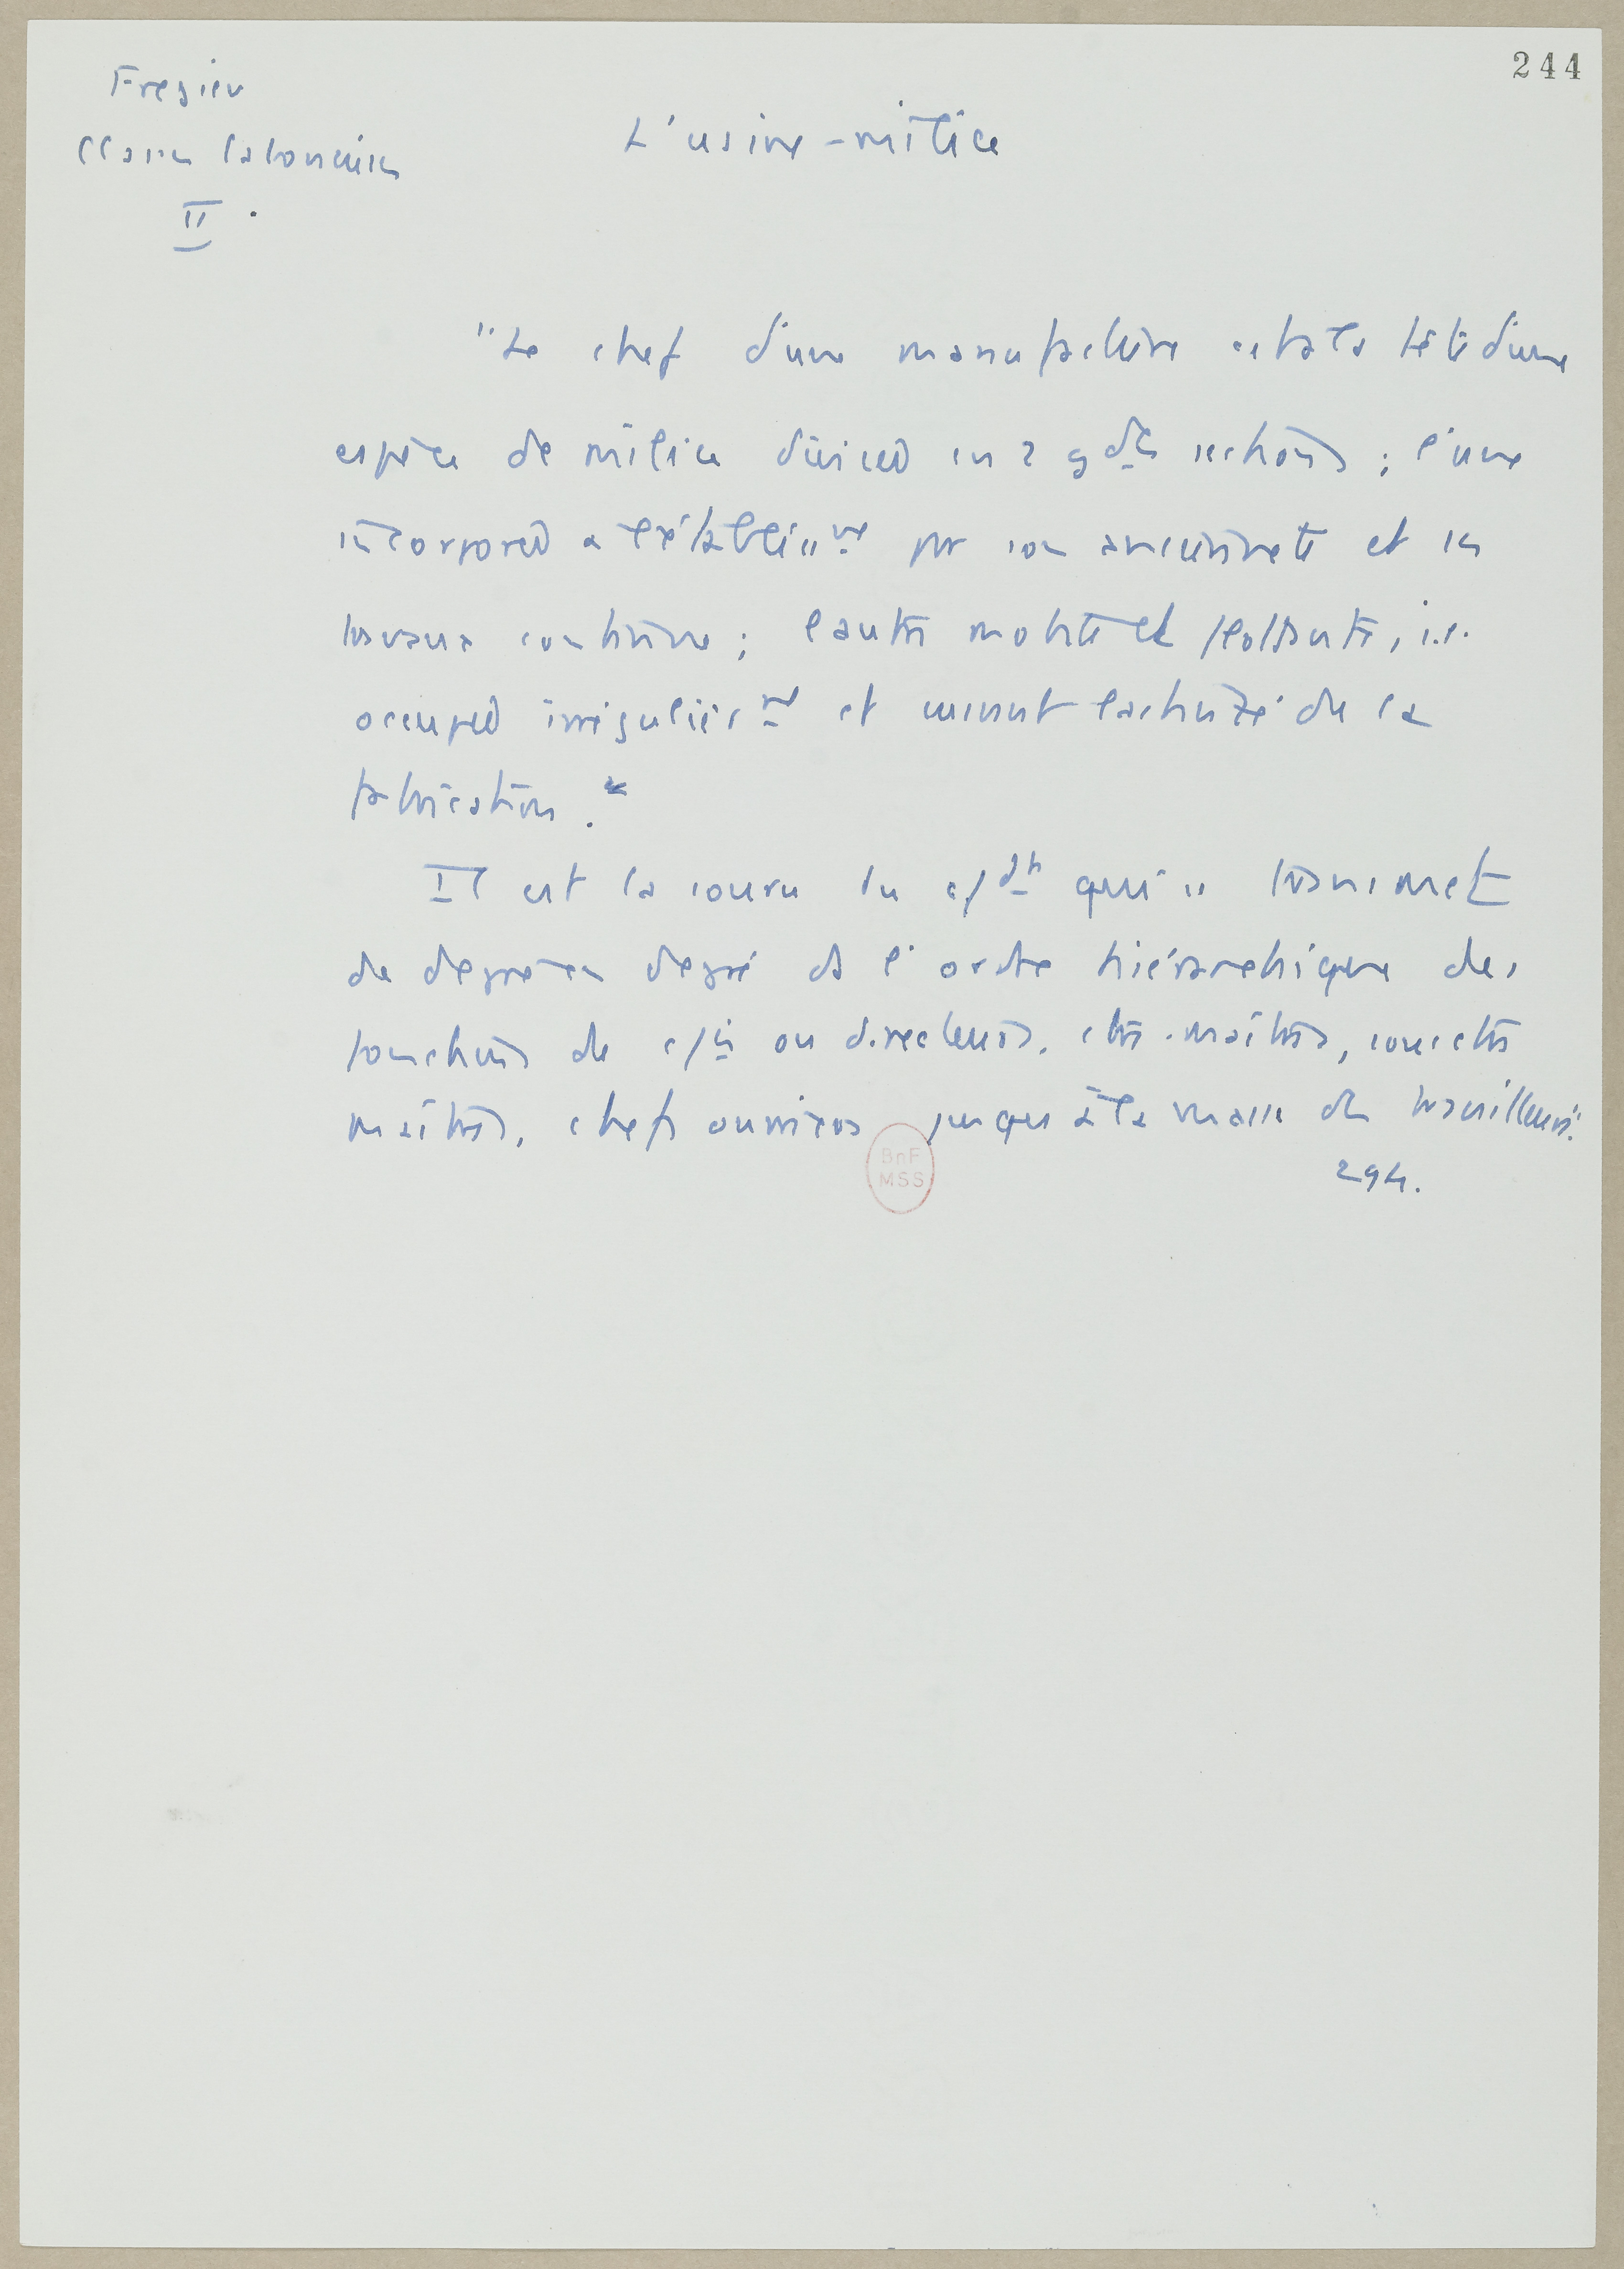 244
Fregier
Classes laborieuses
II.
L'usine-milice
"Le chef d'une manufacture est à la tête d'une
espèce de milice divisée en 2 gdes sections ; l'une
incorporée à l'établissmt par son ancienneté et ses
travaux continus ; l'autre mobile et flottante, i.e.
occupée irrégulièrmt et suivant l'activité de la
fabrication."
Il est la source du cdt qui "se transmet
de degrés en degré ds l'ordre hiérarchique des
fonctions de cis ou directeurs, ctre-maîtres, sous ctre
maîtres, chefs ouvriers jusqu'à la masse des travailleurs".
294.
BnF
MSS